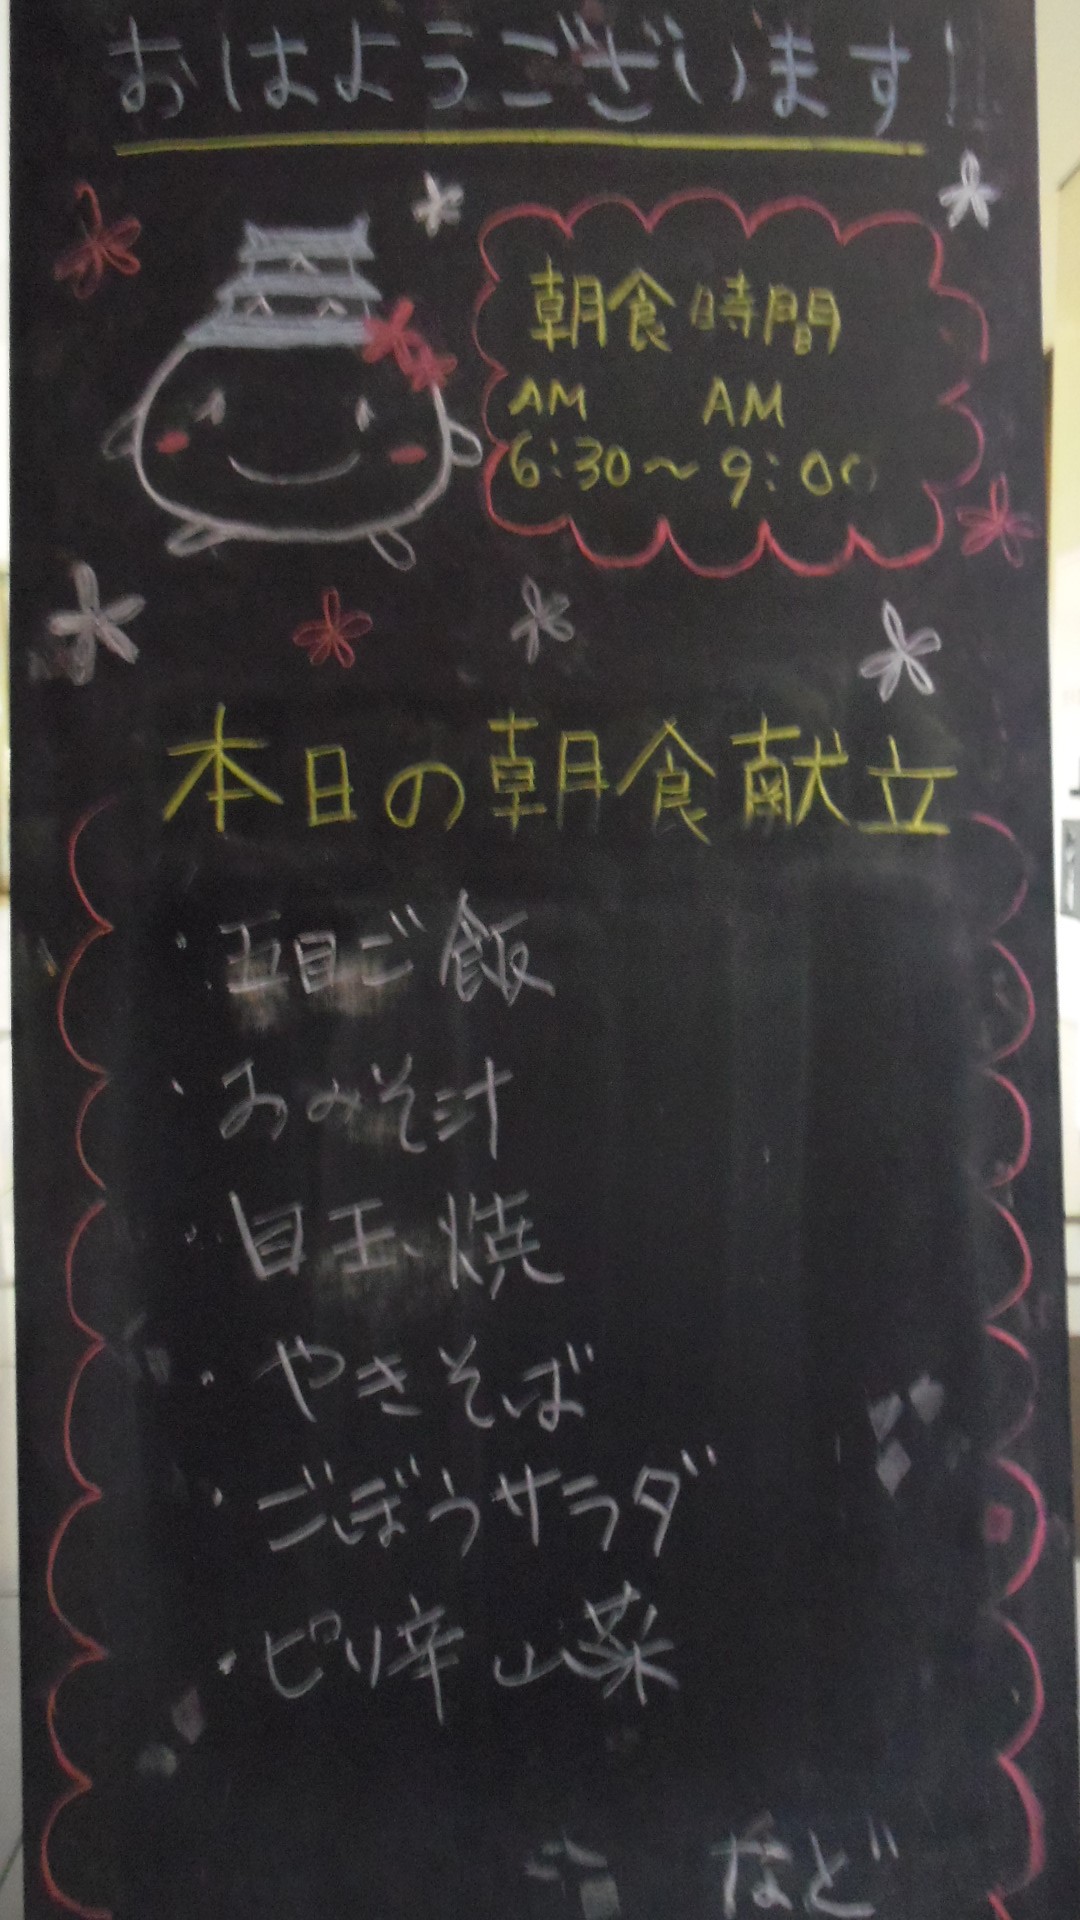 おはようございます!!
朝食時間
AM AM
6:30〜9:00
本日の朝食献立
・五目ご飯
・おみそ汁
・目玉焼
・やきそば
・ごぼうサラダ
・ピリ辛山菜
など